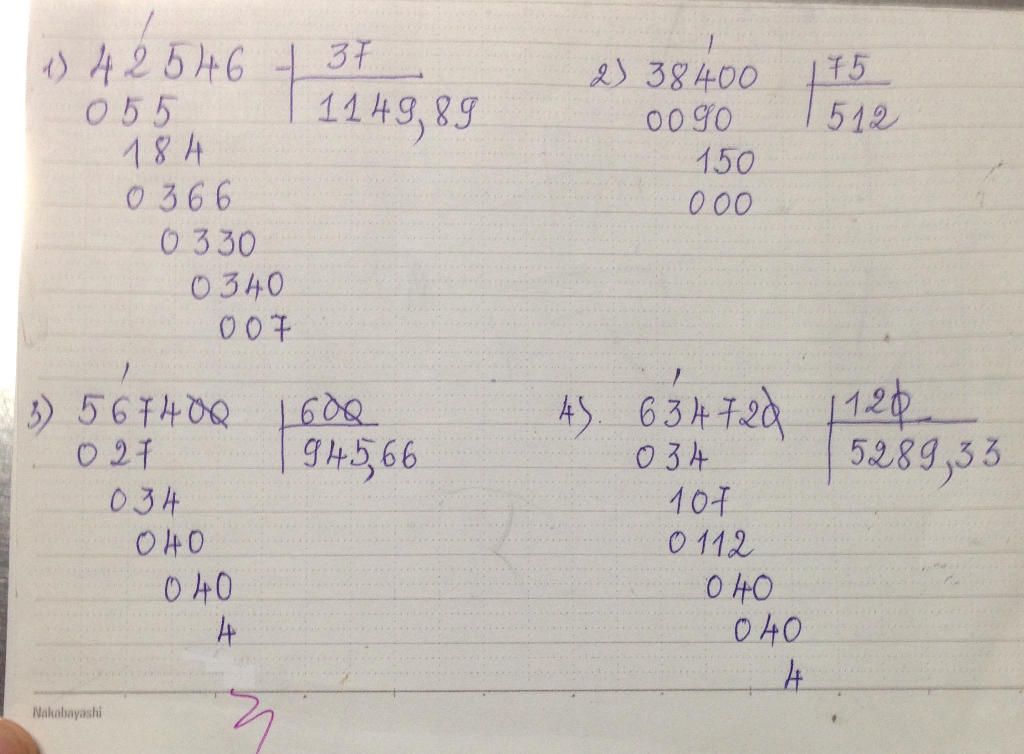 1) 42546 37
055 1149,89
184
0366
0330
0340
007
2) 38400 75
0090 512
150
000
3) 567400 600
027 945,66
034
040
040
4
4). 634720 120
034 5289,33
107
0112
040
040
4
Nakabayashi